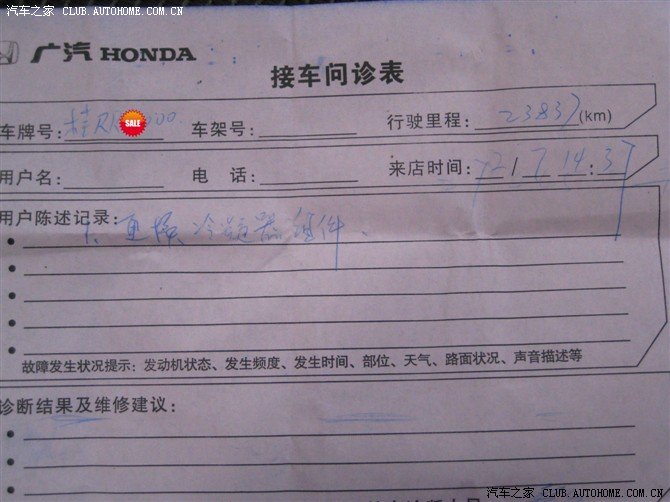 汽车之家 CLUB.AUTOHOME.COM.CN
广汽 HONDA
接车问诊表
车牌号: 桂R SALE 00 车架号: 行驶里程: 23837 (km)
用户名: 电 话: 来店时间: 14:37
用户陈述记录:
1. 更换冷凝器组件.
故障发生状况提示: 发动机状态、发生频度、发生时间、部位、天气、路面状况、声音描述等
诊断结果及维修建议:
汽车之家 CLUB.AUTOHOME.COM.CN